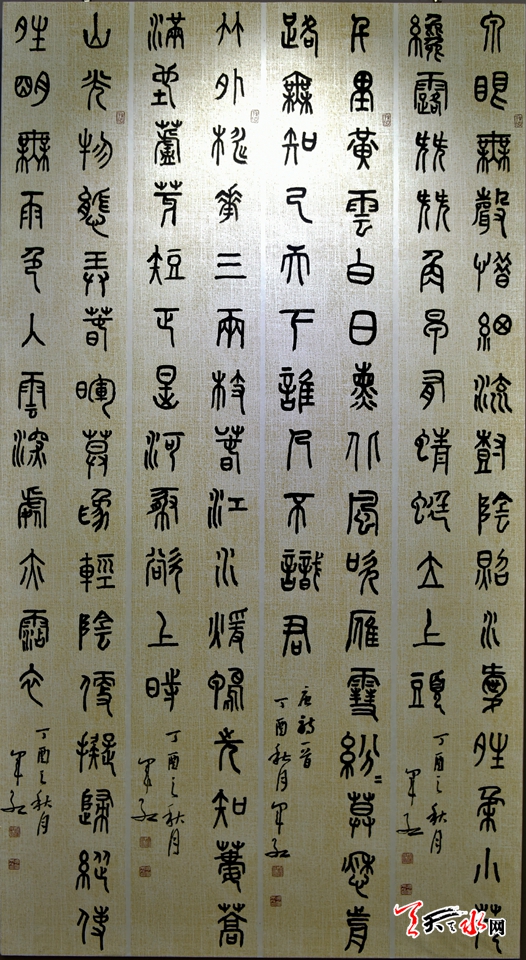 泉眼無聲惜細流樹陰照水愛晴柔小荷
纔露尖尖角早有蜻蜓立上頭
丁酉之秋月
千里黃雲白日曛北風吹雁雪紛紛莫愁前
路無知己天下誰人不識君
唐詩一首
丁酉秋月
竹外桃花三兩枝春江水暖鴨先知蔞蒿
滿地蘆芽短正是河豚欲上時
丁酉之秋月
山光物態弄春暉莫為輕陰便擬歸縱使
晴明無雨色入雲深處亦沾衣
丁酉之秋月
天水网